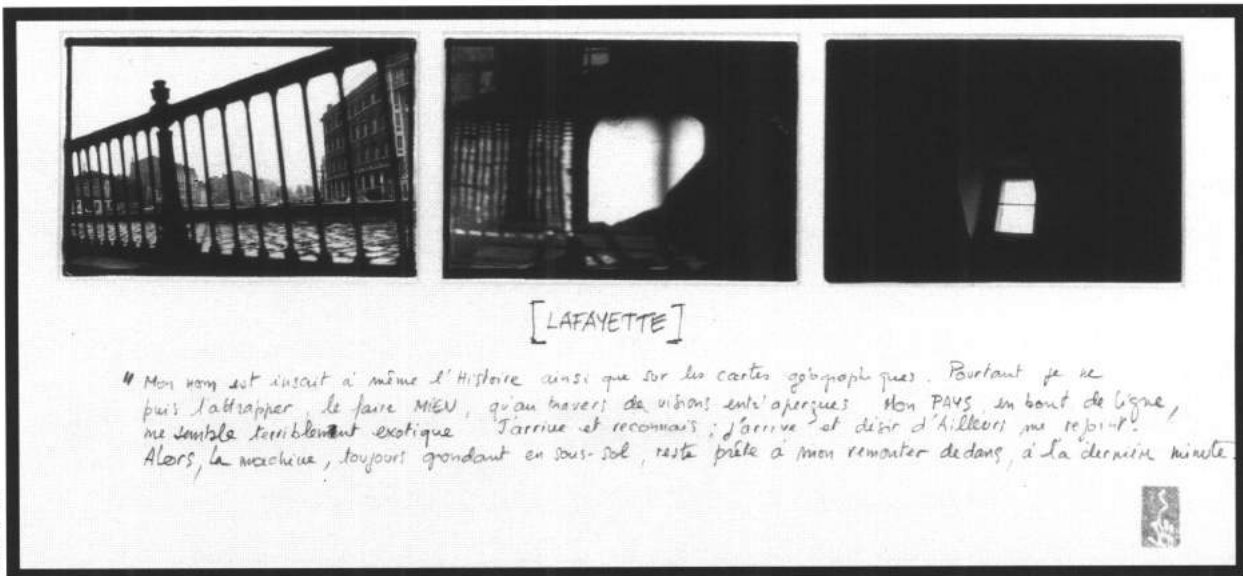 [LAFAYETTE]
" Mon nom est inscrit à même l'Histoire ainsi que sur les cartes géographiques. Pourtant je ne
puis l'attrapper, le faire MIEN, qu'au travers de visions entr'aperçues Mon PAYS, en bout de ligne,
me semble terriblement exotique J'arrive et reconnais ; j'arrive et désir d'Ailleurs me rejoint.
Alors, la machine, toujours grondant en sous-sol, reste prête à mon remonter dedans, à la dernière minute.